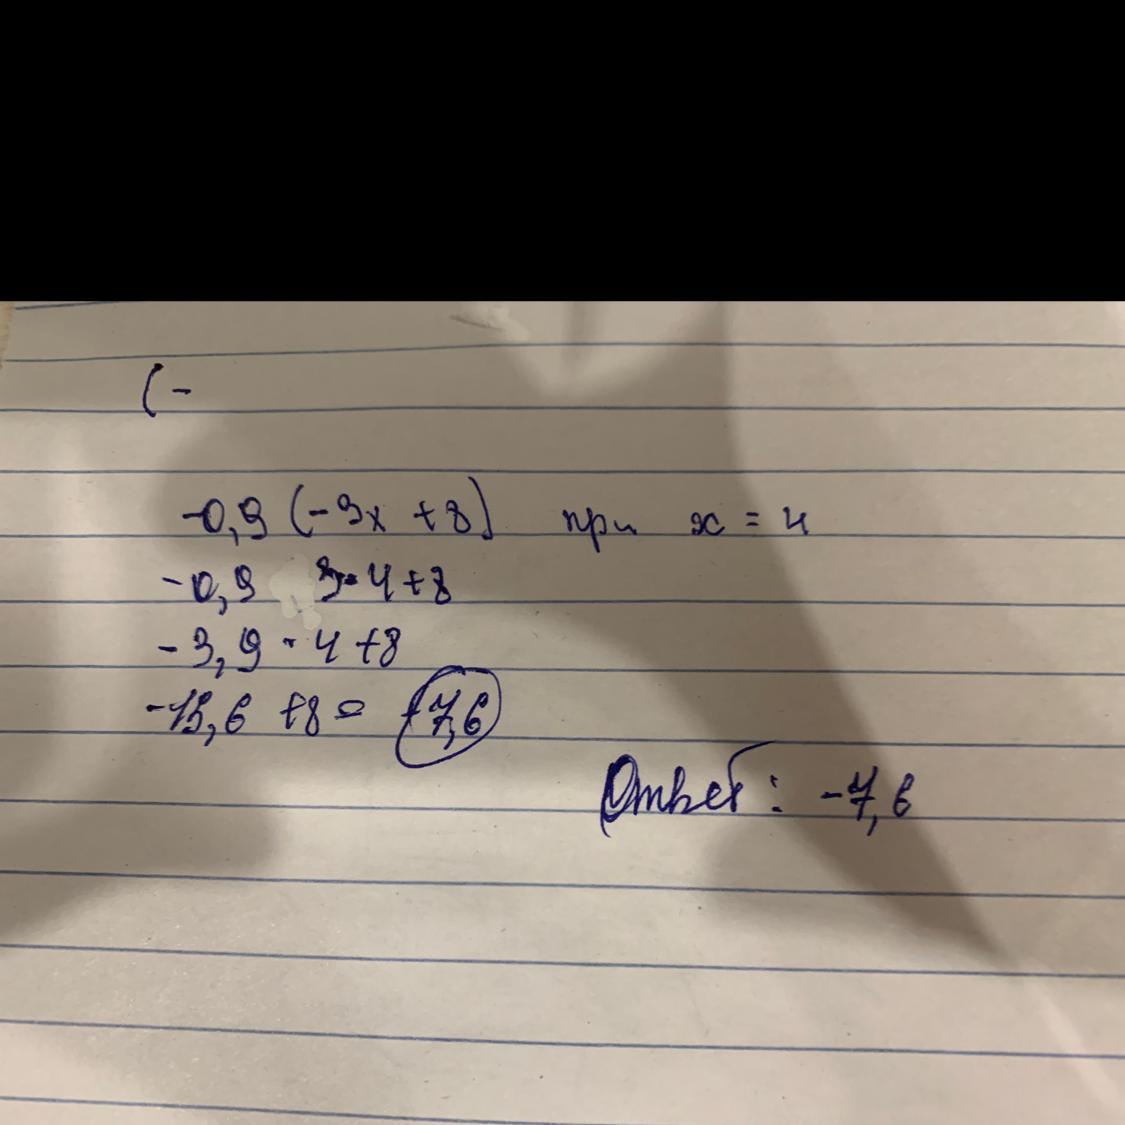 (-
-0,9 (-3x + 8) при x = 4
-0,9 3·4+8
-3,9 · 4 +8
-15,6 +8 = -7,6
Ответ: -7,6